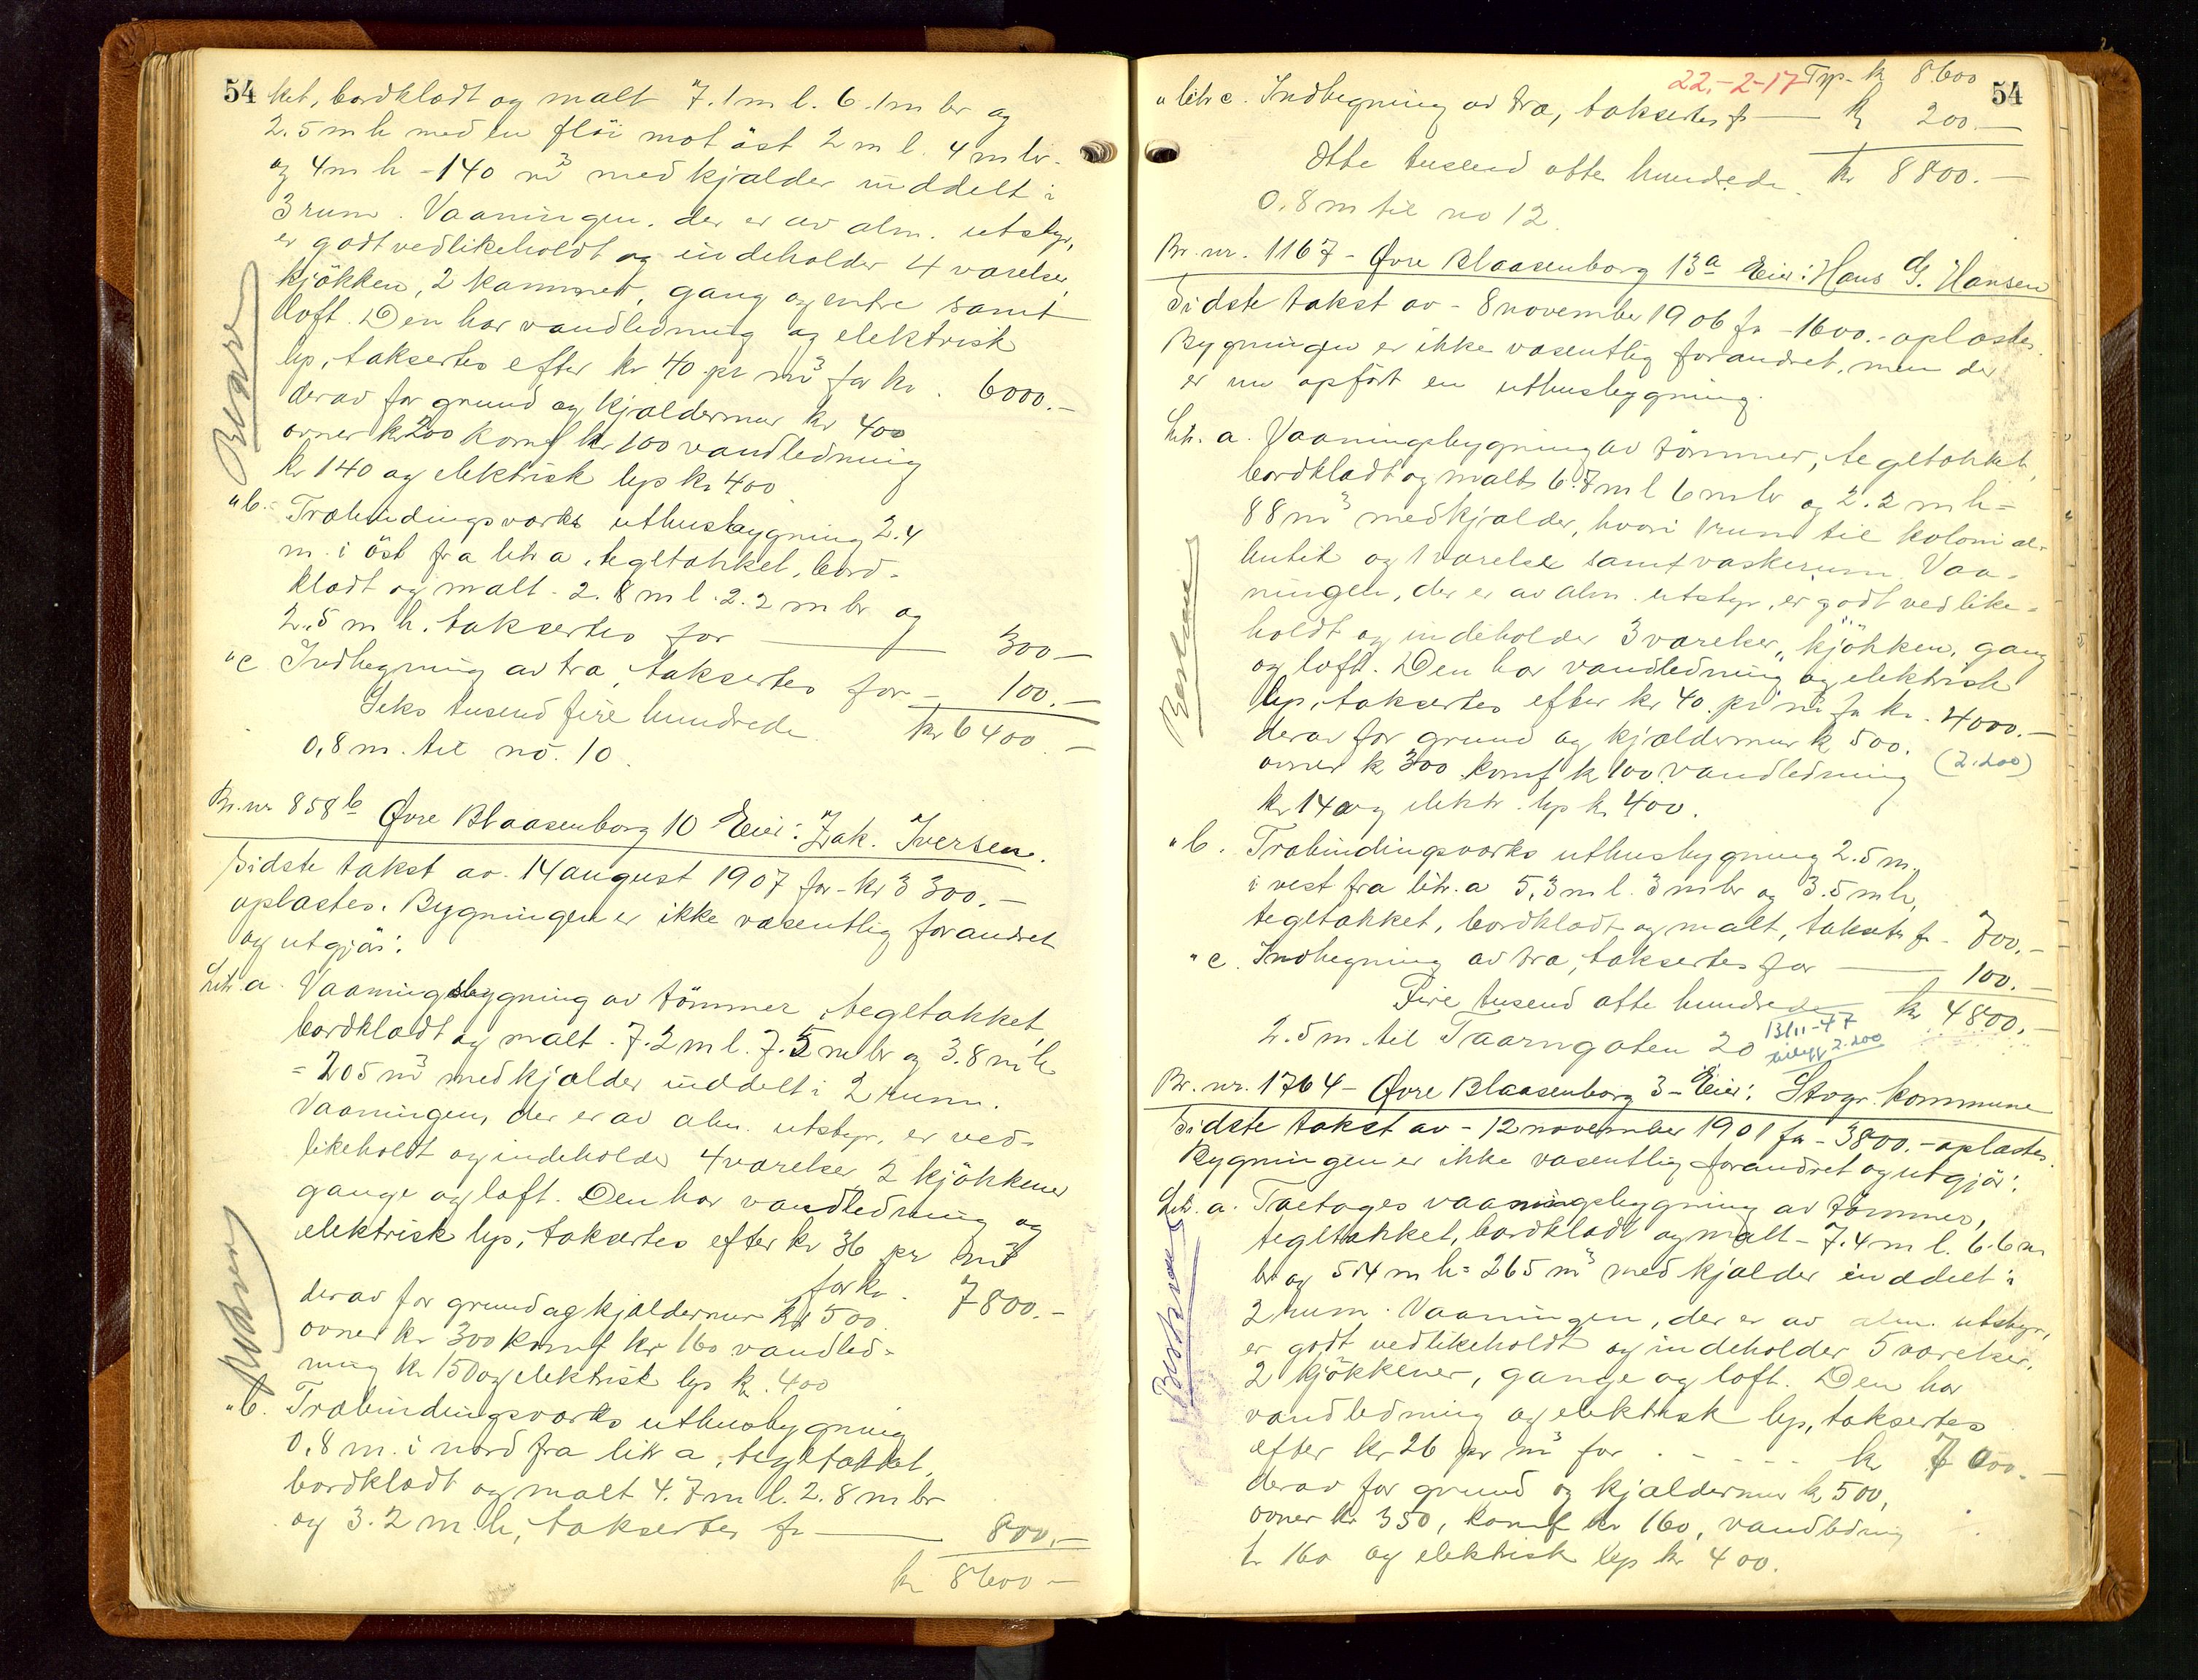 54 ket, bordklædt og malt 7.1 m l. 6.1 m br og
2.5 m h med en flöi mot öst 2 m l. 4 m br.
og 4 m h - 140 m³ med kjælder inddelt i
3 rum. Vaaningen. der er av alm. utstyr,
er godt vedlikeholdt og indeholder 4 værelser,
kjökken, 2 kammer, gang og entre samt
loft. Den har vandledning og elektrisk
lys, taksertes efter kr 40 pr m³ for kr. 6000.-
derav for grund og kjældermur kr 400
ovner kr 200 komf kr 100 vandledning
kr 140 og elektrisk lys kr 400
" b. Træbindingsværks uthusbygning 2.4
m. i öst fra litr a, tegltækket, bord-
klædt og malt - 2.8 m l. 2.2 m br og
2.5 m h. taksertes for 300 -
" c Indhegning av træ, taksertes for - 100.-
Seks tusend fire hundrede. kr 6400.-
0,8 m. til no. 10.
Br. nr 858b Øvre Blaasenborg 10 Eier: Zak. Iversen.
Sidste takst av. 14 august 1907 for - kr 3300.-
oplæstes. Bygningen er ikke væsentlig forandret
og utgjör:
Litr. a. Vaaningsbygning av tömmer, tegltækket,
bordklædt og malt. 7.2 m l. 7.5 m br og 3.8 m h
= 205 m³ med kjælder inddelt i 2 rum.
Vaaningen, der er av alm. utstyr, er ved-
likeholdt og indeholder 4 værelser, 2 kjökkener
gange og loft. Den har vandledning og
elektrisk lys, taksertes efter kr 36 pr m³
for kr. 7800.-
derav for grund og kjældermur kr 500.
ovner kr 300 komf kr 160 vandled-
ning kr 150 og elektrisk lys kr. 400
" b. Træbindingsværks uthusbygning
0,8 m. i nord fra litr a, tegltækket,
bordklædt og malt 4.7 m l. 2.8 m br
og 3.2 m. h, taksertes fr 800.-
kr 8600 -
22.-2-17 Trp. kr 8600 54
" litr c. Indhegning av træ, taksertes fr kr 200.-
Otte tusend otte hundrede. kr 8800.-
0.8 m til no 12.
Br. nr. 1167 - Øvre Blaasenborg 13a Eier: Hans G. Hansen
Sidste takst av - 8 november 1906 fr - 1600.- oplæstes.
Bygningen er ikke væsentlig forandret, men der
er nu opfört en uthusbygning.
Litr. a. Vaaningsbygning av tömmer, tegltækket,
bordklædt og malt 6.7 m l 6 m br og 2.2 m h =
88 m³ med kjælder, hvori 1 rum til kolonial-
butik og 1 værelse samt vaskerum. Vaa-
ningen, der er av alm. utstyr, er godt vedlike-
holdt og indeholder 3 værelser, kjökken, gang
og loft. Den har vandledning og elektrisk
lys, taksertes efter kr 40 pr m³ fr kr. 4000.-
derav for grund og kjældermur kr 500. (2.200)
ovner kr 300 komf kr 100 vandledning
kr 140 og elektr. lys kr. 400.
" b. Træbindingsværks uthusbygning 2.5 m.
i vest fra litr. a 5,3 m l. 3 m br og 3.5 m h,
tegltækket, bordklædt og malt, takserts fr - 700.-
" c. Indhegning av træ, taksertes for 100.-
Fire tusend otte hundrede kr 4800.-
2.5 m. til Taarngaten 20 13/11-47
2.200
Br. nr. 1764 - Øvre Blaasenborg 3 - Eier: Stvgr. kommune
Sidste takst av - 12 november 1901 fr - 3800.- oplæstes.
Bygningen er ikke væsentlig forandret og utgjör:
Litr. a. Toetages vaaningsbygning av tömmer,
tegltækket, bordklædt og malt - 7.4 m l. 6.6 m
br og 5.4 m h = 265 m³ med kjælder inddelt i
2 rum. Vaaningen, der er av alm. utstyr,
er godt vedlikeholdt og indeholder 5 værelser,
2 kjökkener, gange og loft. Den har
vandledning og elektrisk lys, taksertes
efter kr 26 pr m³ for kr 7000.-
derav for grund og kjældermur kr 500,
ovner kr 350, komf kr 160, vandledning
kr 160 og elektrisk lys kr 400.